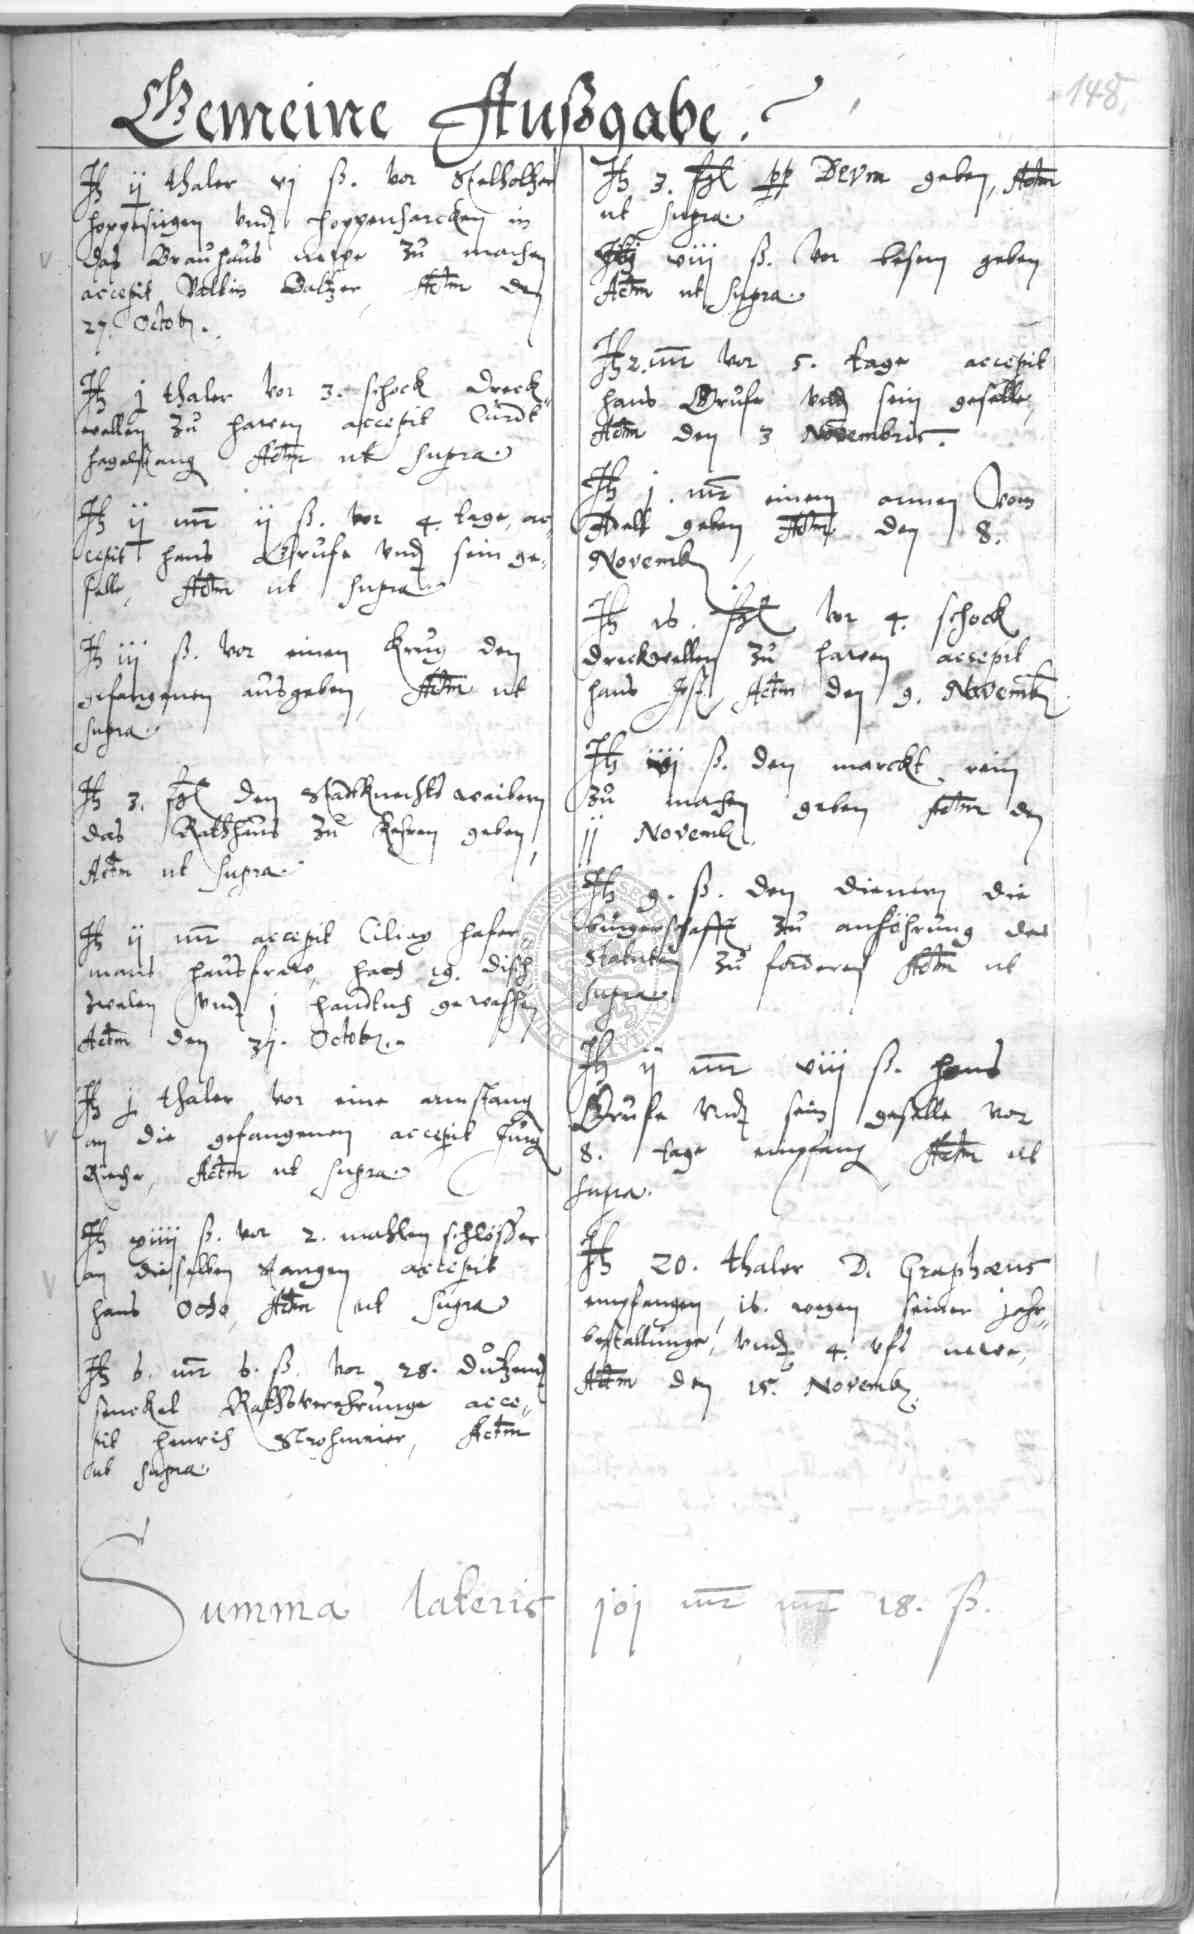 148.
Gemeine Außgabe.
It ij thaler vj ß. vor Stelholtzer
hoppestigen vnd hoppenharcken in
das Brauhaus newe zu machen
accepit Valtin Baltzer, Actm den
27. Octob.
It j thaler vor 3. schock dreck
wellen zu hawen accepit Curdt
hagelgang Actm ut supra.
It ij mr ij ß. vor 4. tage, ac=
cepit hans Grufe vnd sein ge=
selle, Actm ut supra.
It iij ß. vor einen Krug den
gefangenen ausgeben, Actm ut
supra.
It 3. fgl den Stattknechts weibern
das Rathhaus zu kehren geben,
Actm ut supra.
It ij mr accepit Ciliax hafer
mans hausfraw, hatt 19. disch
zwelen vnd j handtuch gewasschen
Actm den 31. Octob.
It j thaler vor eine armstang
an die gefangenen accepit Jurg
Actm ut supra.
It xiiij ß. vor 2. mahlen schlösser
an dieselben Stangen accepit
hans Otto, Actm ut supra
It 6. mr 6. ß. vor 28. dutzend
senckel Rathsverehrunge acce=
pit Henrich Strohmeier, Actm
ut supra.
It 3. fgl pp Deum geben, Actm
ut supra.
It viij ß. vor besem geben
Actm ut supra.
It 2. mr vor 5. tage accepit
hans Grufe vnd sein geselle,
Actm den 3 Novembris.
It j. mr einem armen vom
Adell geben Actm. den 8.
Novemb
It 16. fgl vor 4. schock
dreckwellen zu hawen accepit
hans Actm den 9. Novemb.
It iiij ß. den marckt rein
zu machen geben Actm den
jj Novemb.
It 9. ß. den dienern die
burgerschafft zu anhöhrung der
Statuten zu forderen Actm ut
supra
It ij mr viij ß. hans
Grufe vnd sein geselle vor
8. tage empfang Actm ut
supra.
It 20. thaler D. Graphæus
empfangen, 16. wegen seiner jahr=
bestallunge, vnd 4. vfs newe,
Actm den 15. Novemb.
Summa lateris joj mr mr 18. ß.